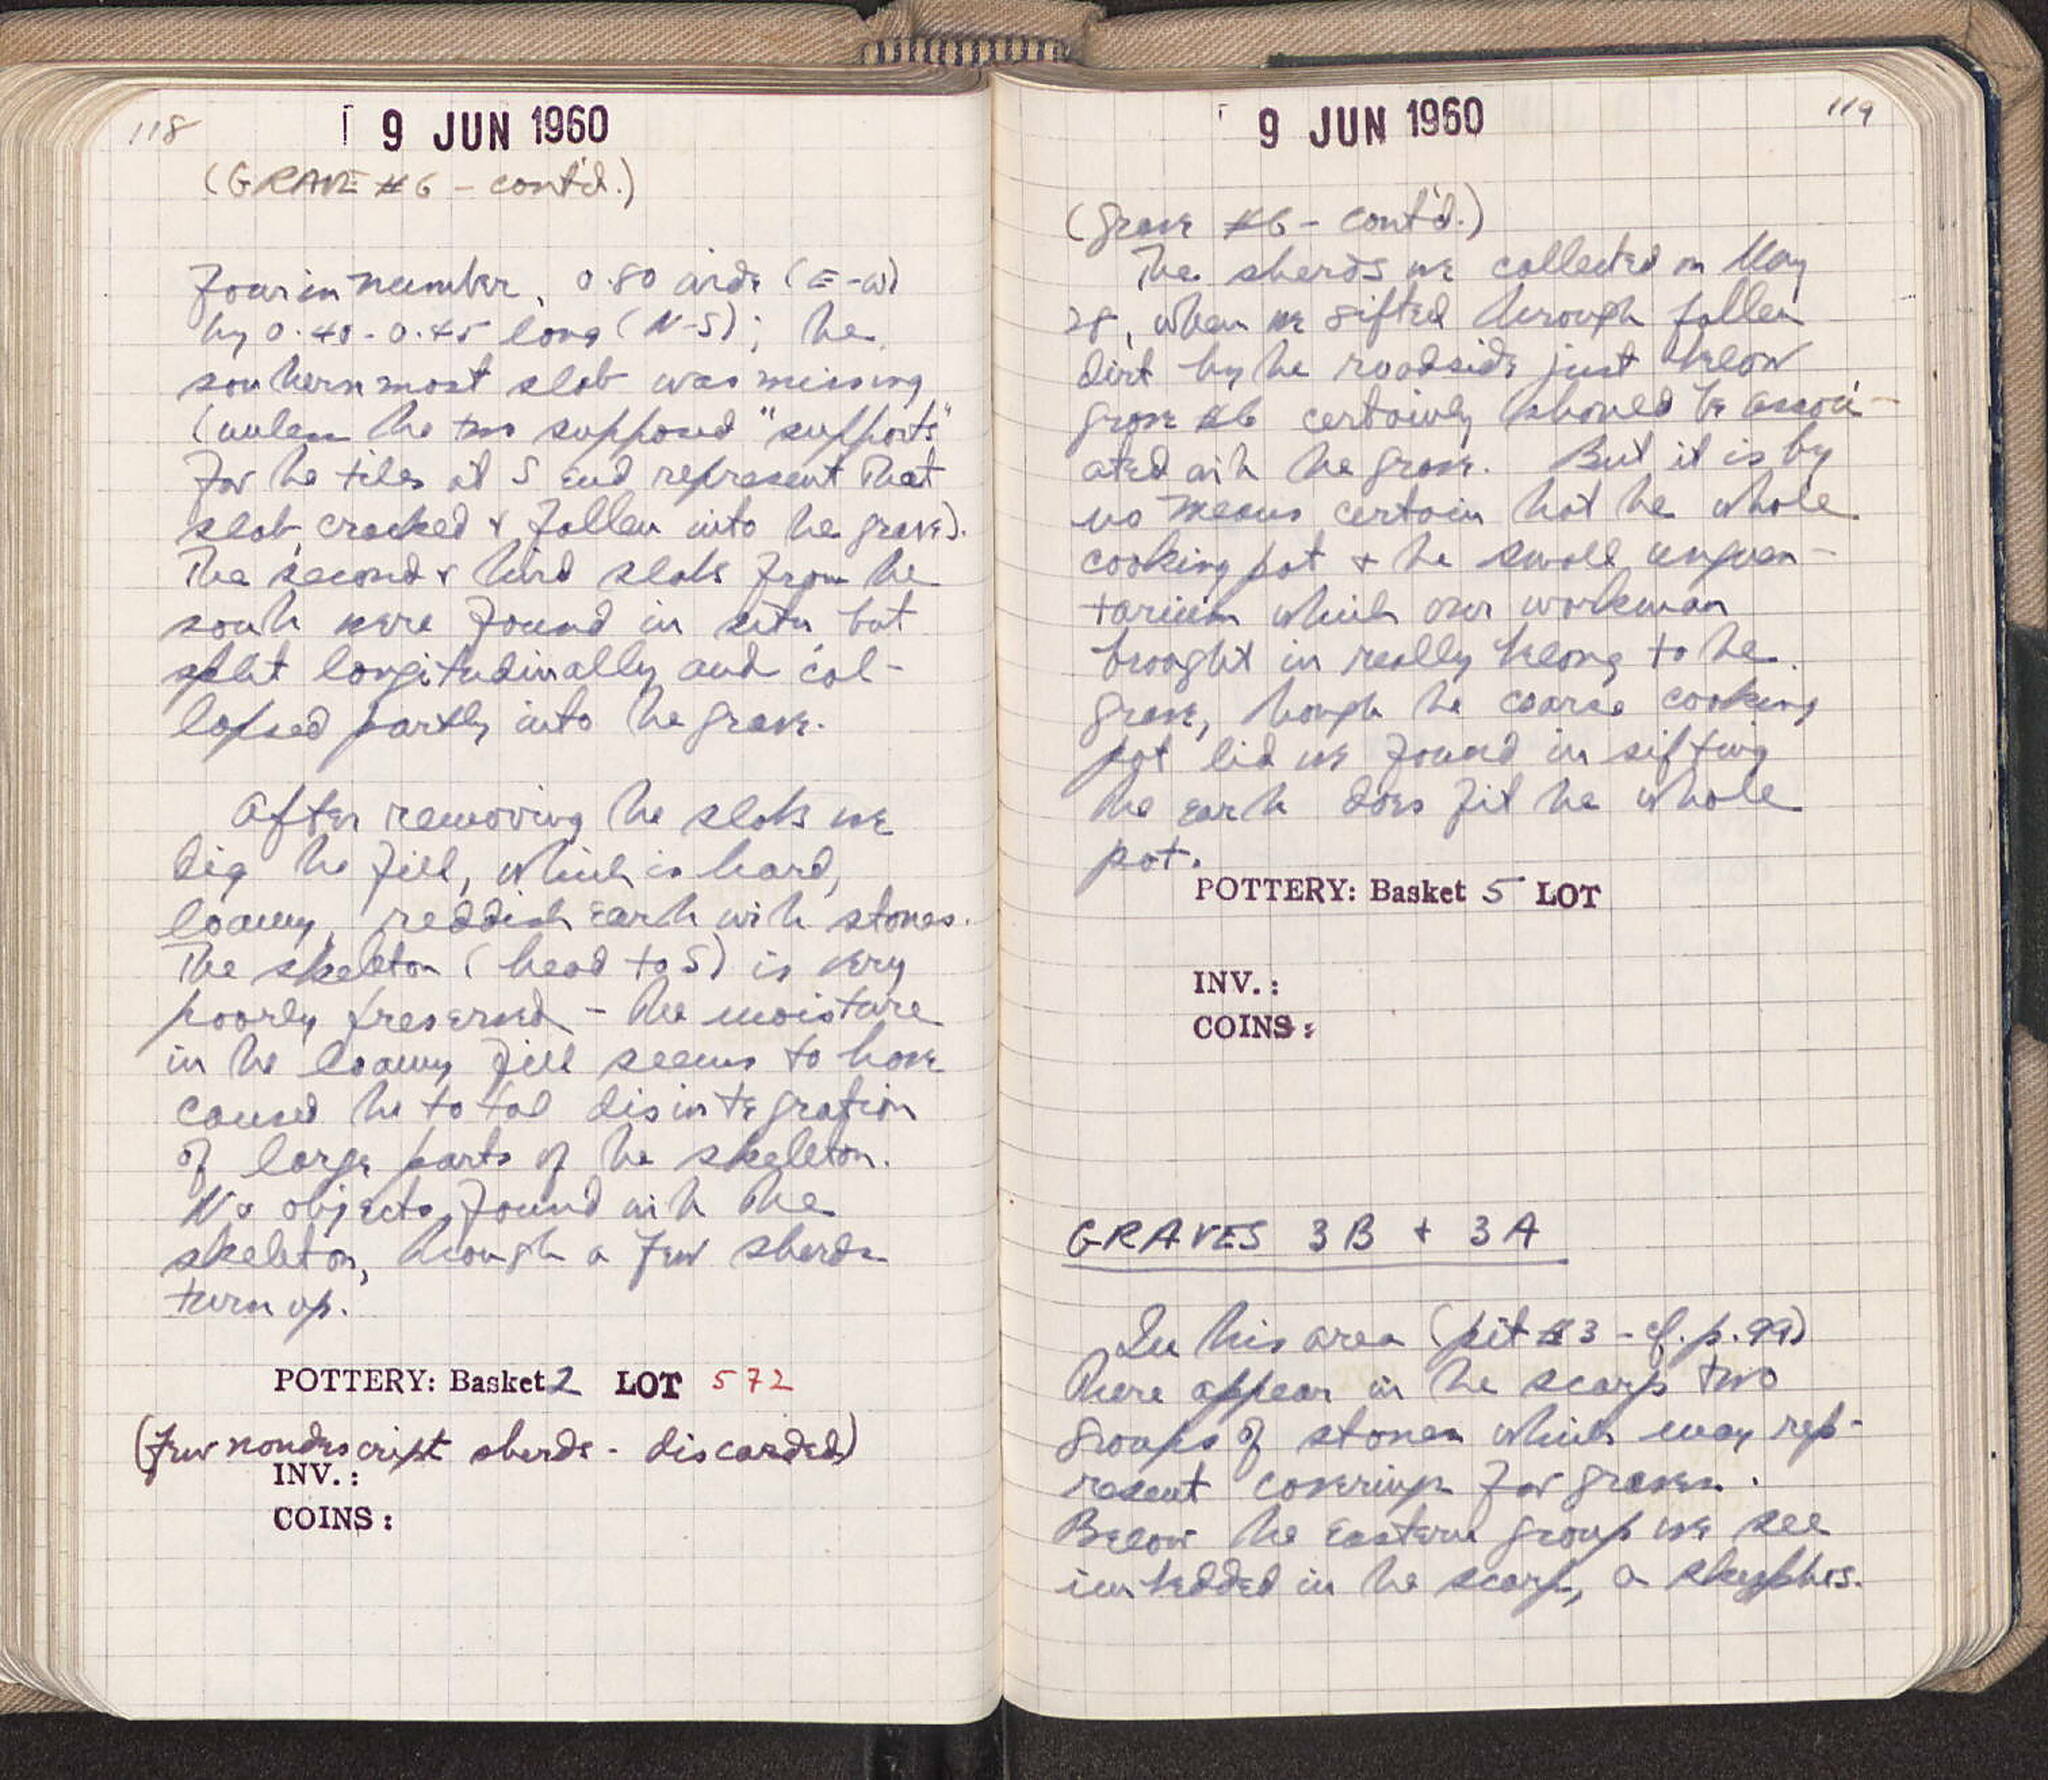 118
9 JUN 1960
(GRAVE #6 - cont'd.)
four in number, 0.80 wide (E-W)
by 0.40-0.45 long (N-S); the
southernmost slab was missing
(unless the two supposed "supports"
for the tiles at S end represent that
slab, cracked & fallen into the grave).
The second & third slabs from the
south were found in situ but
split longitudinally and col-
lapsed partly into the grave.
After removing the slabs we
dig the fill, which is hard,
loamy, reddish earth with stones.
The skeleton (head to S) is very
poorly preserved - the moisture
in the loamy fill seems to have
caused the total disintegration
of large parts of the skeleton.
No objects found with the
skeleton, though a few sherds
turn up.
POTTERY: Basket 2 LOT 572
(few nondescript sherds - discarded)
INV.:
COINS:
119
9 JUN 1960
(Grave #6 - cont'd.)
The sherds we collected on May
28, when we sifted through fallen
dirt by the roadside just below
grave #6 certainly should be associ-
ated with the grave. But it is by
no means certain that the whole
cooking pot & the small unguen-
tarium which our workman
brought in really belong to the
grave, though the coarse cooking
pot lid we found in sifting
the earth does fit the whole
pot.
POTTERY: Basket 5 LOT
INV.:
COINS:
GRAVES 3B + 3A
In this area (pit #3 - cf. p. 99)
there appear in the scarp two
groups of stones which may rep-
resent coverings for graves.
Below the eastern group we see
imbedded in the scarp, a skyphos.